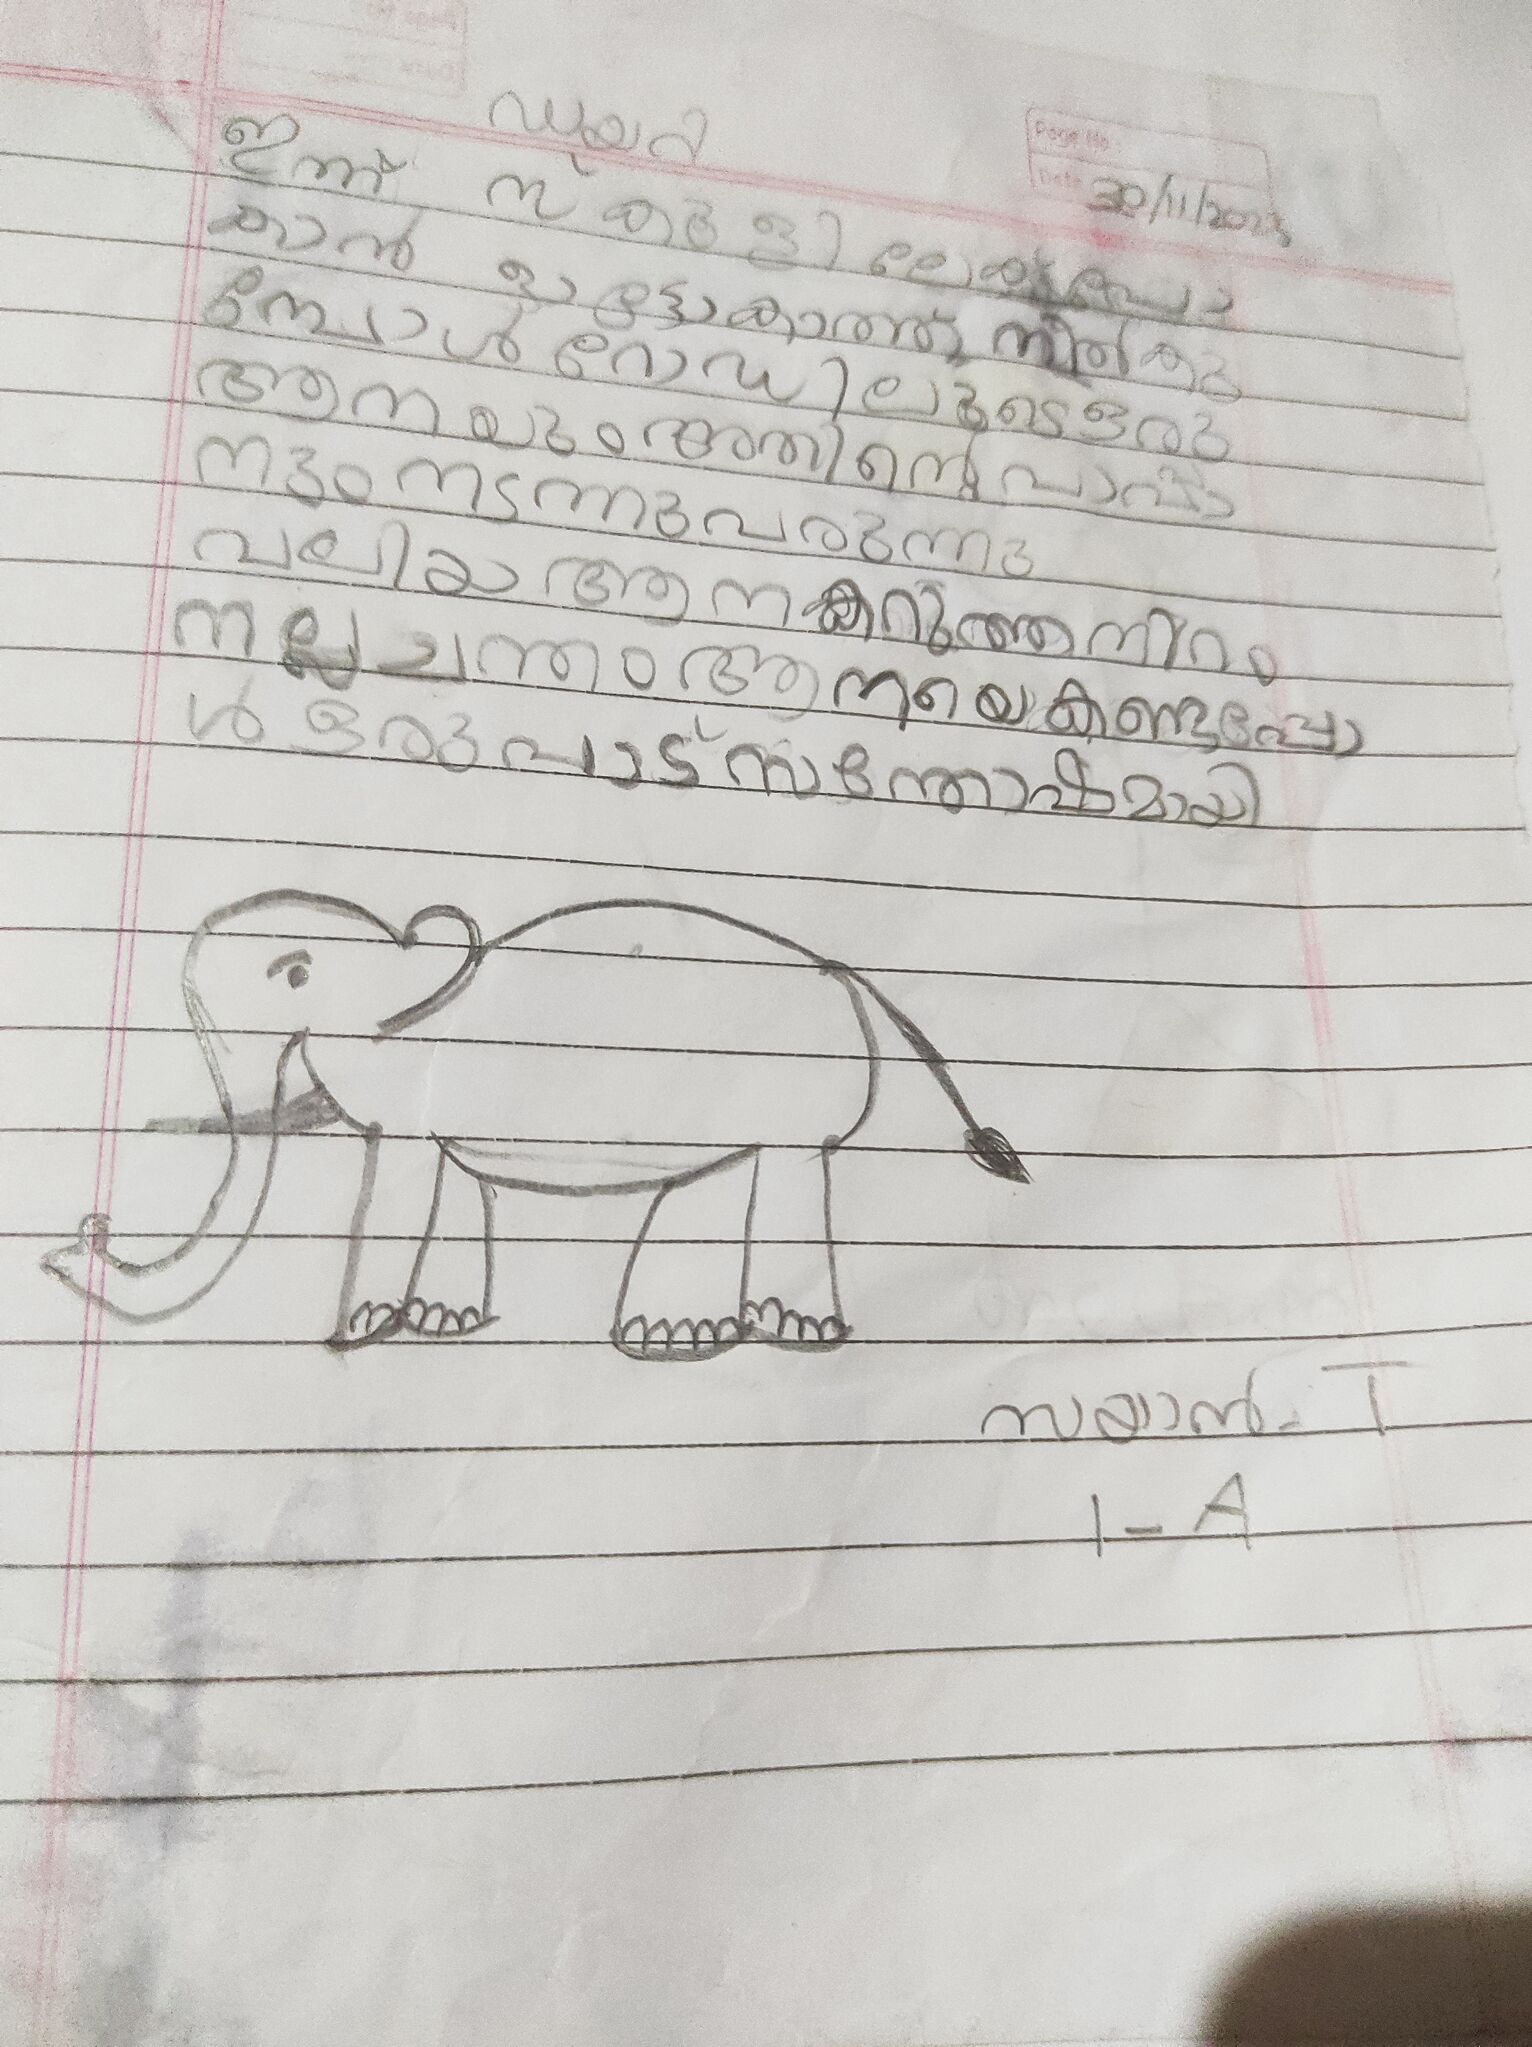 ഡയറി
Page No.
Date 30/11/2023
ഇന്ന് സ്കൂളിലേക്ക് പോ
കാൻ ഓട്ടോകാത്ത് നിൽകു
മ്പോൾ റോഡിലൂടെ ഒരു
ആനയും അതിന്റെ പാപ്പാ
നും നടന്നുവരുന്നു
വലിയ ആന കറുത്ത നിറം
നല്ല ചന്തം ആനയെ കണ്ടപ്പോ
ൾ ഒരുപാട് സന്തോഷമായി
സയാൻ. T
1-A